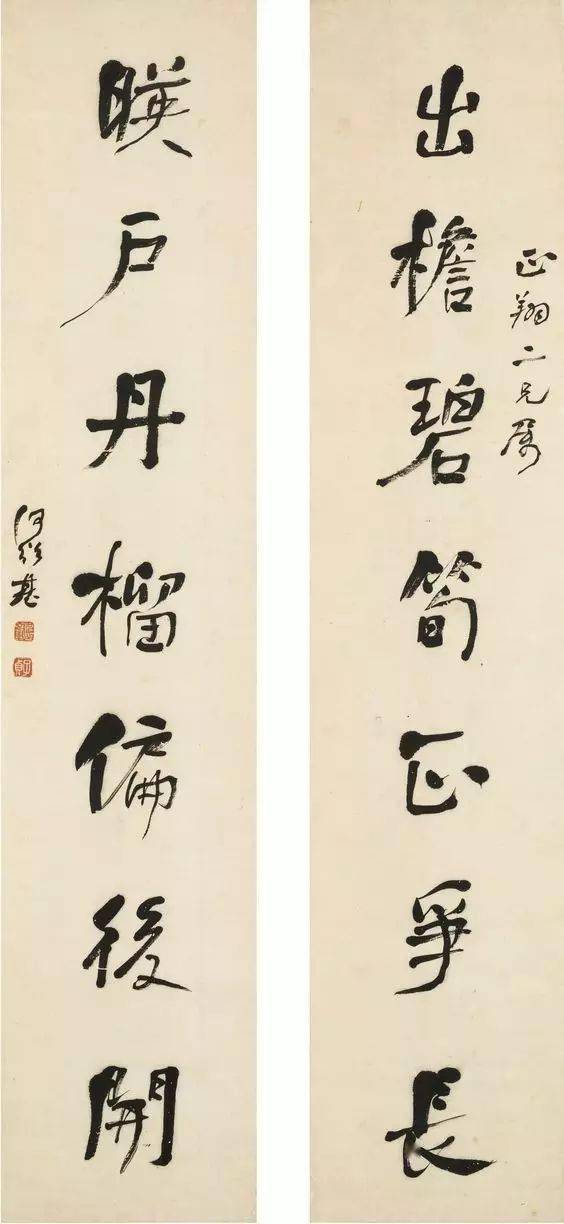 出檐碧筍正爭長
正翔二兄屬
暎户丹榴偏後開
何紹基